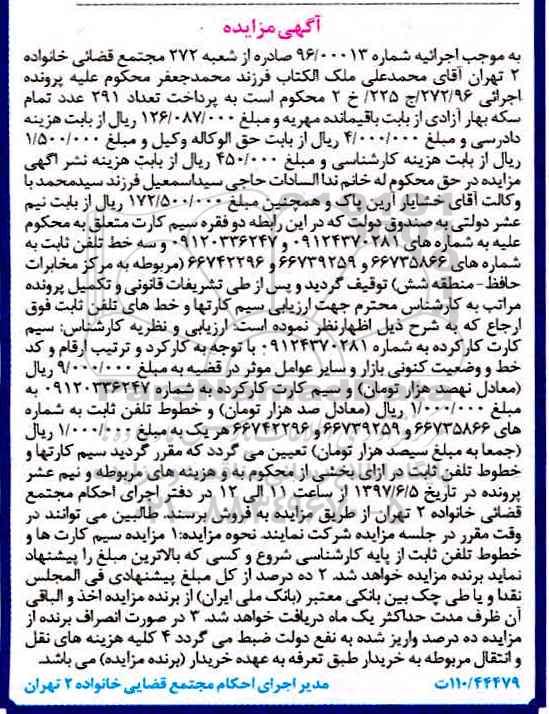 آگهی مزایده
به موجب اجرائیه شماره ۹۶/۰۰۰۱۳ صادره از شعبه ۲۷۲ مجتمع قضائی خانواده
۲ تهران آقای محمدعلی ملک الکتاب فرزند محمدجعفر محکوم علیه پرونده
اجرائی ۲۷۲/۹۶/ج ۲۲۵/ خ ۲ محکوم است به پرداخت تعداد ۲۹۱ عدد تمام
سکه بهار آزادی از بابت باقیمانده مهریه و مبلغ ۱۲۶/۰۸۷/۰۰۰ ریال از بابت هزینه
دادرسی و مبلغ ۴/۰۰۰/۰۰۰ ریال از بابت حق الوکاله وکیل و مبلغ ۱/۵۰۰/۰۰۰
ریال از بابت هزینه کارشناسی و مبلغ ۴۵۰/۰۰۰ ریال از بابت هزینه نشر آگهی
مزایده در حق محکوم له خانم ندا السادات حاجی سیداسمعیل فرزند سیدمحمد با
وکالت آقای خشایار آرین پاک و همچنین مبلغ ۱۷۲/۵۰۰/۰۰۰ ریال از بابت نیم
عشر دولتی به صندوق دولت که در این رابطه دو فقره سیم کارت متعلق به محکوم
علیه به شماره های ۰۹۱۲۴۳۷۰۲۸۱ و ۰۹۱۲۰۳۳۶۲۴۷ و سه خط تلفن ثابت به
شماره های ۶۶۷۳۵۸۶۶ و ۶۶۷۳۹۲۵۹ و ۶۶۷۴۲۲۹۶ (مربوطه به مرکز مخابرات
حافظ-منطقه شش) توقیف گردید و پس از طی تشریفات قانونی و تکمیل پرونده
مراتب به کارشناس محترم جهت ارزیابی سیم کارتها و خط های تلفن ثابت فوق
ارجاع که به شرح ذیل اظهارنظر نموده است: ارزیابی و نظریه کارشناس: سیم
کارت کارکرده به شماره ۰۹۱۲۴۳۷۰۲۸۱ با توجه به کارکرد و ترتیب ارقام و کد
خط و وضعیت کنونی بازار و سایر عوامل موثر در قضیه به مبلغ ۹/۰۰۰/۰۰۰ ریال
(معادل نهصد هزار تومان) و سیم کارت کارکرده به شماره ۰۹۱۲۰۳۳۶۲۴۷ به
مبلغ ۱/۰۰۰/۰۰۰ ریال (معادل صد هزار تومان) و خطوط تلفن ثابت به شماره
های ۶۶۷۳۵۸۶۶ و ۶۶۷۳۹۲۵۹ و ۶۶۷۴۲۲۹۶ هر یک به مبلغ ۱/۰۰۰/۰۰۰ ریال
(جمعا به مبلغ سیصد هزار تومان) تعیین می گردد که مقرر گردید سیم کارتها و
خطوط تلفن ثابت در ازای بخشی از محکوم به و هزینه های مربوطه و نیم عشر
پرونده در تاریخ ۱۳۹۷/۶/۵ از ساعت ۱۱ الی ۱۲ در دفتر اجرای احکام مجتمع
قضائی خانواده ۲ تهران از طریق مزایده به فروش برسند. طالبین می توانند در
وقت مقرر در جلسه مزایده شرکت نمایند. نحوه مزایده: ۱ مزایده سیم کارت ها و
خطوط تلفن ثابت از پایه کارشناسی شروع و کسی که بالاترین مبلغ را پیشنهاد
نماید برنده مزایده خواهد شد. ۲ ده درصد از کل مبلغ پیشنهادی فی المجلس
نقدا و یا طی چک بین بانکی معتبر (بانک ملی ایران) از برنده مزایده اخذ و الباقی
آن ظرف مدت حداکثر یک ماه دریافت خواهد شد. ۳ در صورت انصراف برنده از
مزایده ده درصد واریز شده به نفع دولت ضبط می گردد ۴ کلیه هزینه های نقل
و انتقال مربوطه به خریدار طبق تعرفه به عهده خریدار (برنده مزایده) می باشد.
۱۱۰/۴۴۴۷۹ت مدیر اجرای احکام مجتمع قضایی خانواده ۲ تهران